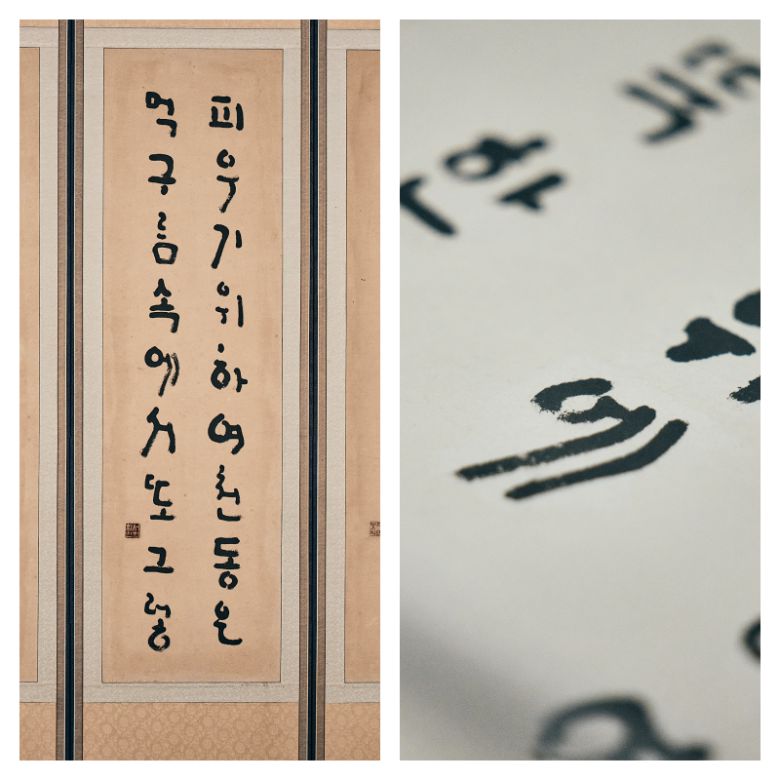 피우기위하여천둥은
먹구름속에서또그렇
에